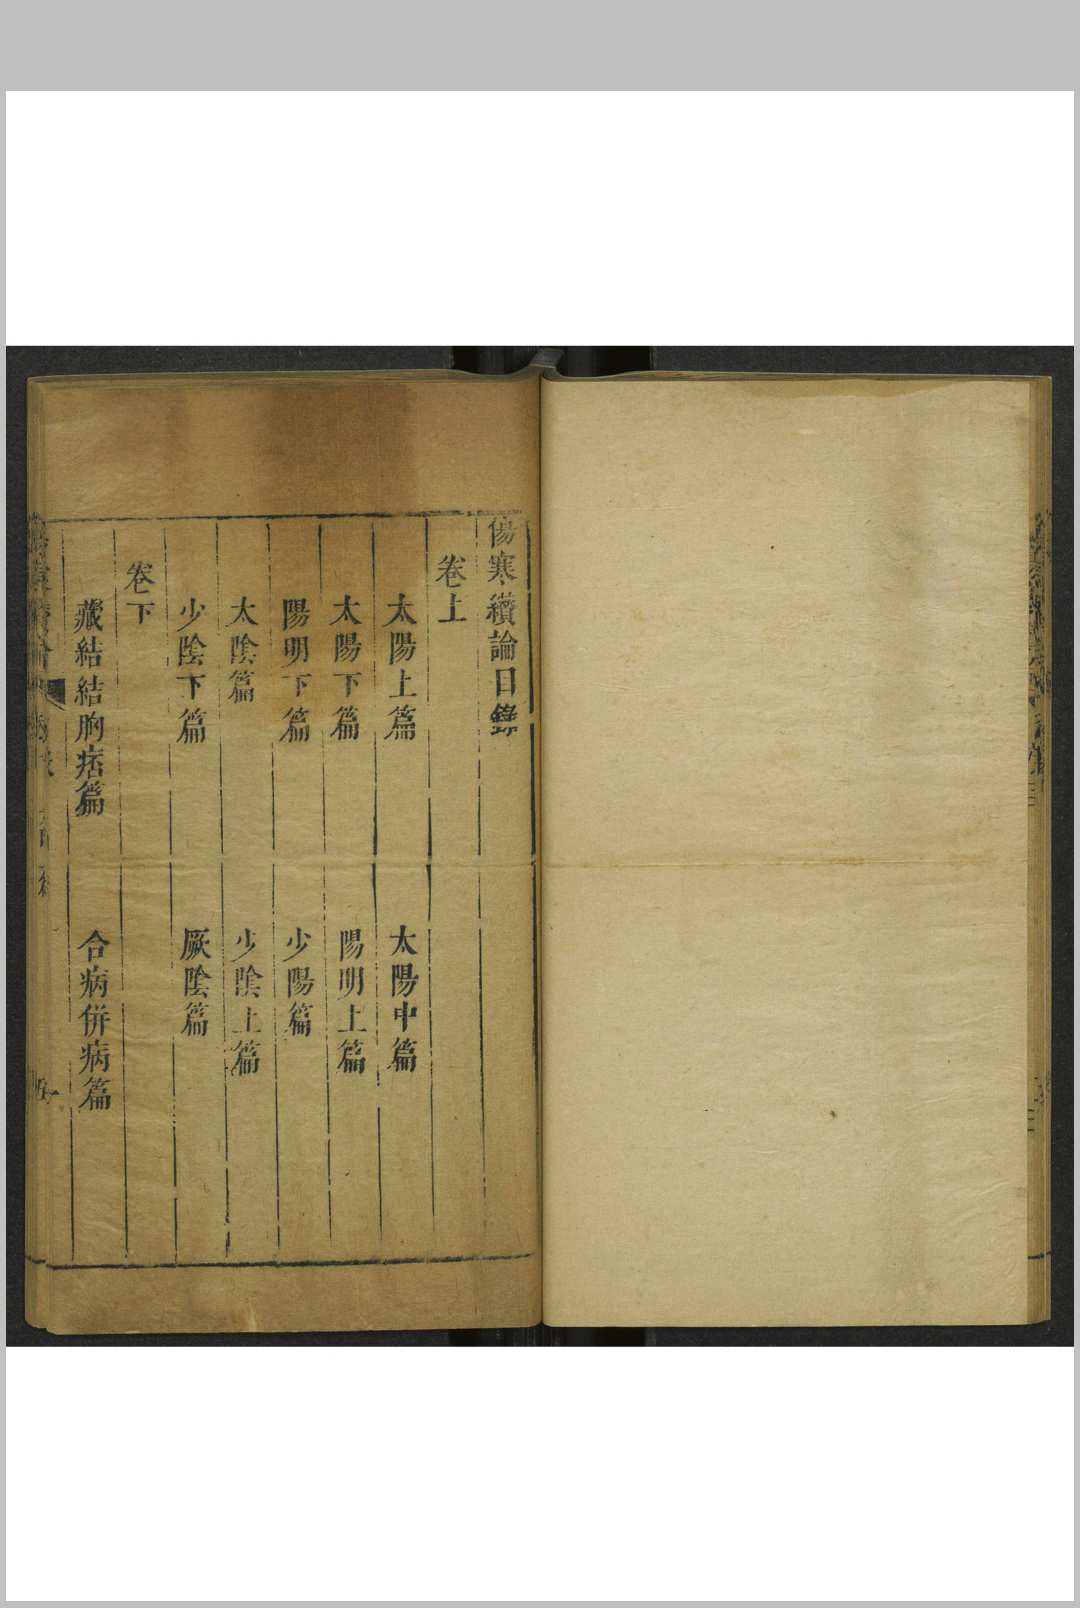 傷寒纘論目錄
卷上
太陽上篇　太陽中篇
太陽下篇　陽明上篇
陽明下篇　少陽篇
太陰篇　少陰上篇
少陰下篇　厥陰篇
卷下
藏結結胸痞篇　合病併病篇